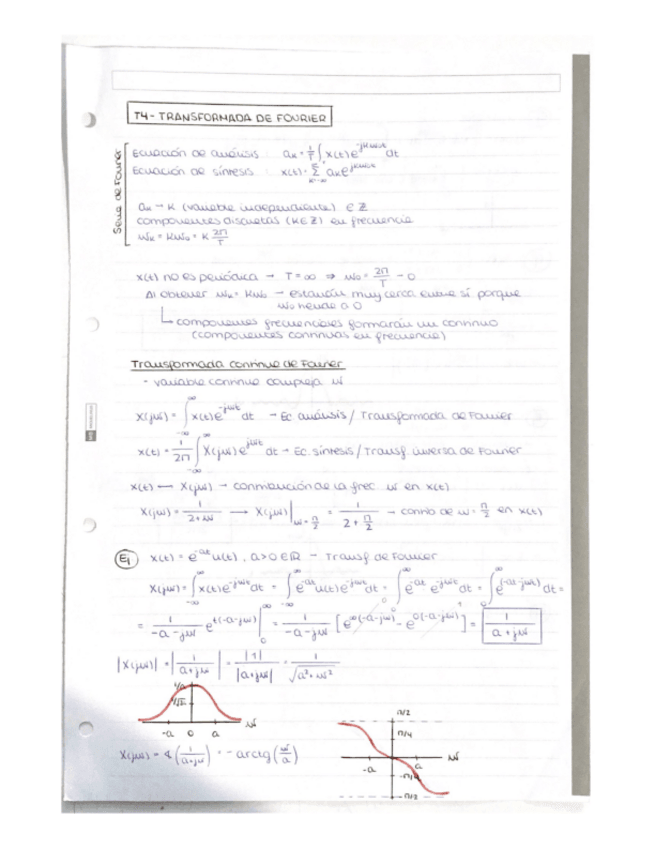 T4- TRANSFORMADA DE FOURIER
Serie de Fourier
Ecuación de análisis : aκ = 1/T ∫ x(t) e^-jκω₀t dt
Ecuación de síntesis : x(t) = Σ aκ e^jκω₀t
aκ → κ (variable independiente) ∈ ℤ
componentes discretas (κ∈ℤ) en frecuencia
ωκ = κω₀ = κ 2π/T
x(t) no es periódica → T=∞ ⇒ ω₀ = 2π/T → 0
Al obtener ωκ = κω₀ → estarán muy cerca entre sí porque
ω₀ tiende a 0
↳ componentes frecuenciales formarán un continuo
(componentes continuas en frecuencia)
Transformada continua de Fourier
- variable continua compleja ω
X(jω) = ∫_-∞^∞ x(t) e^-jωt dt → Ec análisis / Transformada de Fourier
x(t) = 1/2π ∫_-∞^∞ X(jω) e^jωt dt → Ec. síntesis / Transf. inversa de Fourier
x(t) ⟷ X(jω) → contribución de la frec ω en x(t)
X(jω) = 1/2+ω → X(jω)|ω=π/2 = 1/2+π/2 → contrib de ω = π/2 en x(t)
E1 x(t) = e^-at u(t) , a>0 ∈ ℝ → Transf de Fourier
X(jω) = ∫_-∞^∞ x(t) e^-jωt dt = ∫_-∞^∞ e^-at u(t) e^-jωt dt = ∫_0^∞ e^-at e^-jωt dt = ∫_0^∞ e^t(-a-jω) dt =
= 1/-a-jω e^t(-a-jω) |_0^∞ = 1/-a-jω [e^∞(-a-jω) - e^0(-a-jω)] = 1/a+jω
|X(jω)| = |1/a+jω| = |1|/|a+jω| = 1/√a²+ω²
1/a
-a 0 a ω
X(jω) = ∢(1/a+jω) = -arctg(ω/a)
π/2
π/4
-a a ω
-π/4
-π/2